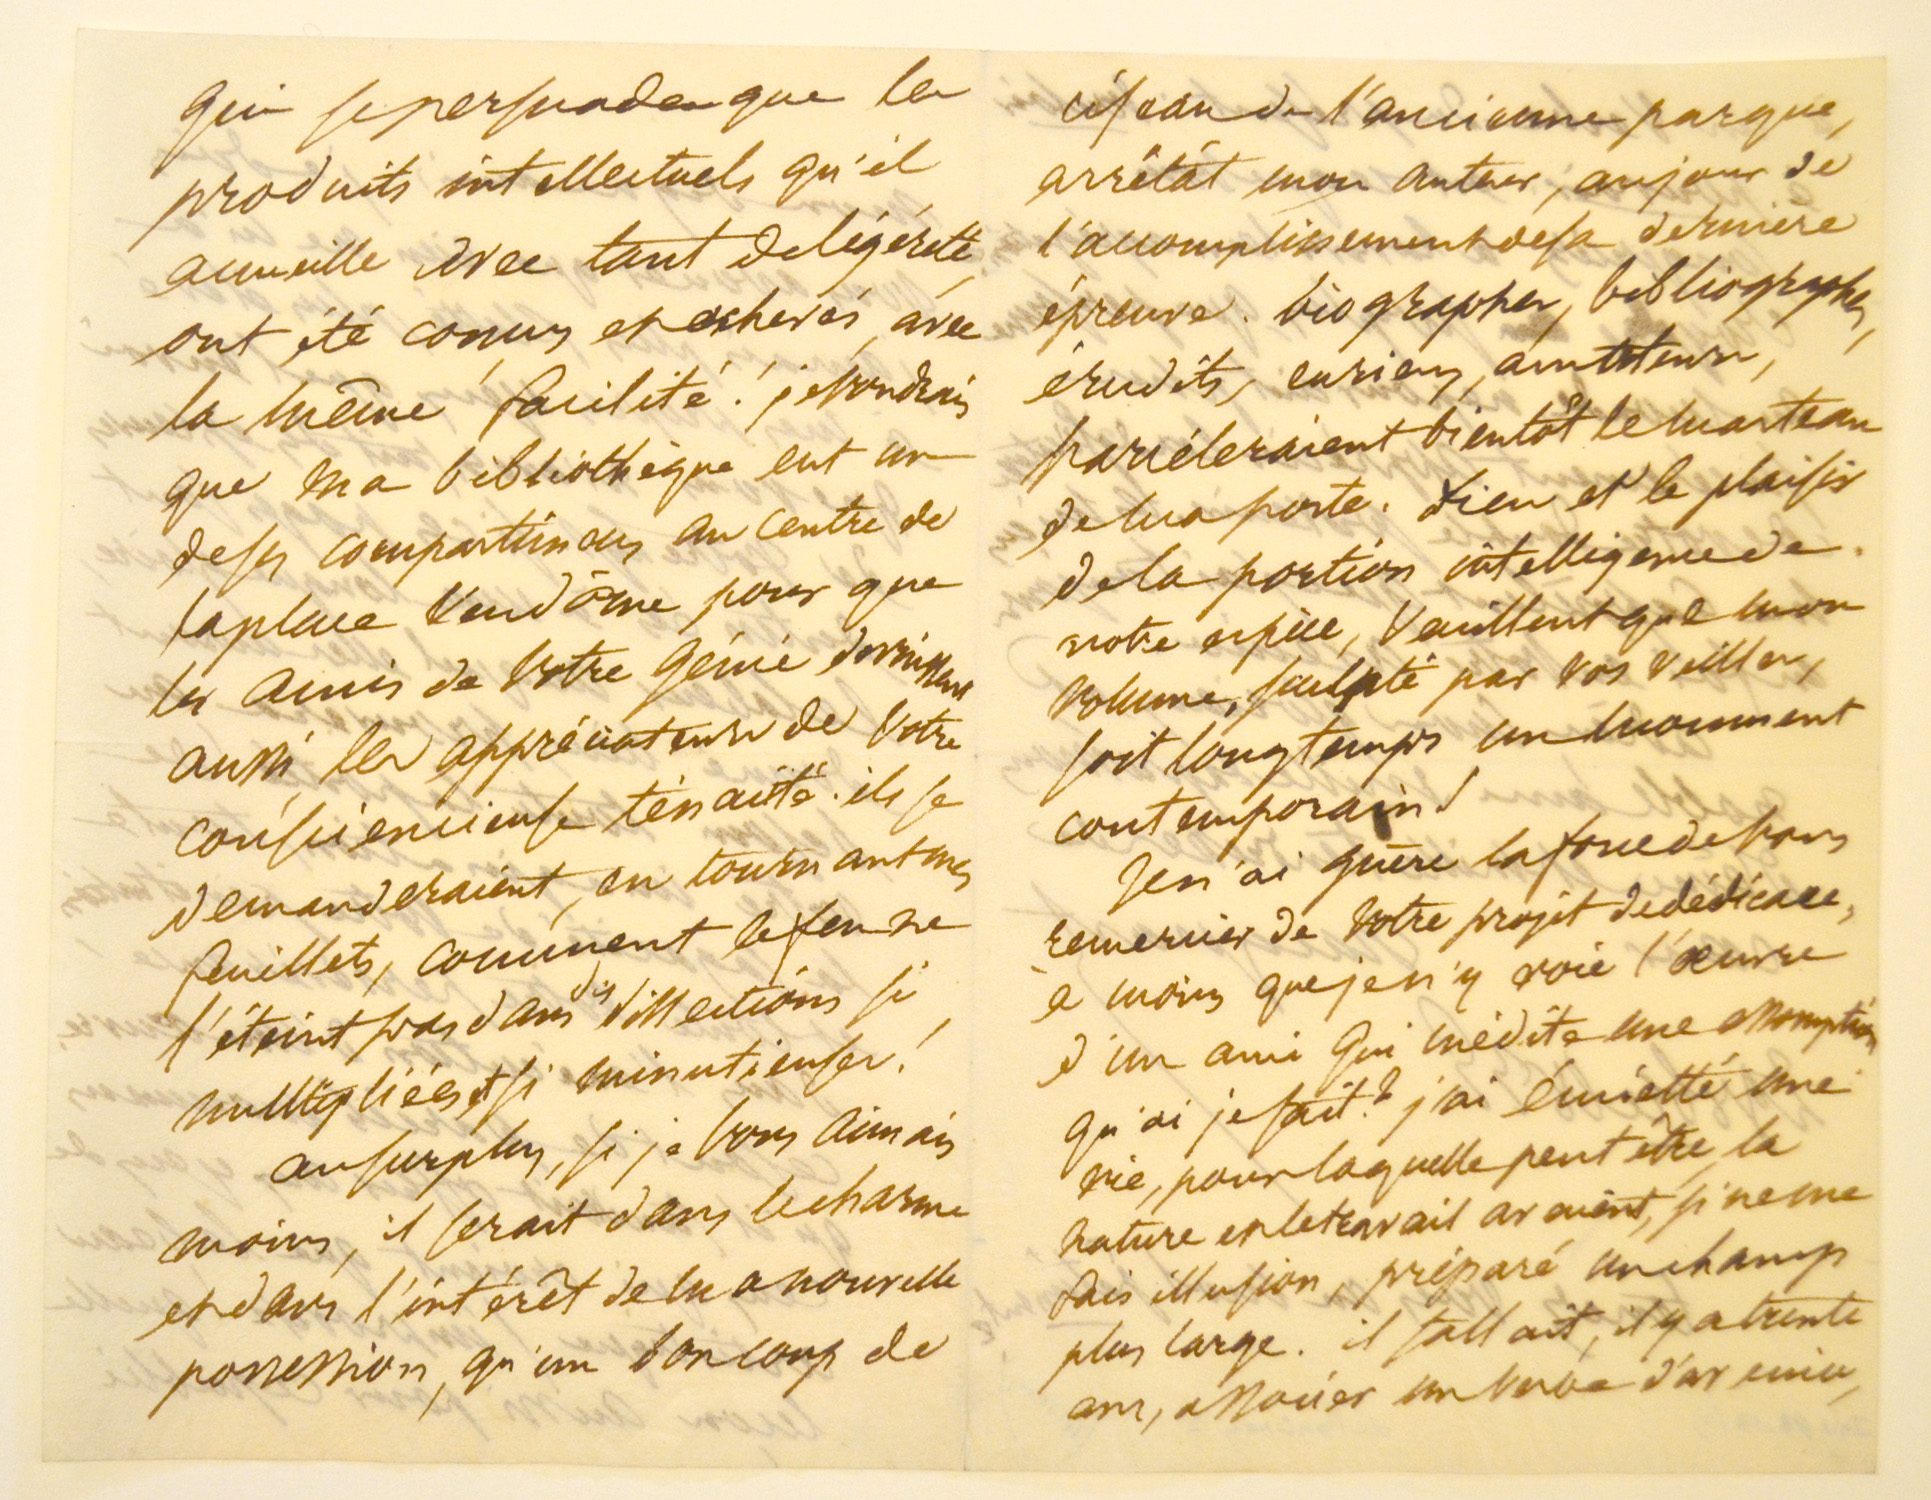 qui se persuade que les
produits intellectuels qu'il
accueille avec tant de légéreté,
ont été conçus et achevés, avec
la même facilité! je voudrais
que ma bibliothèque eut un
de ses compartimens au centre de
la place Vendôme pour que
les amis de votre génie devinssent
aussi les appréciateurs de votre
consciencieuse ténacité. ils se
demanderaient, en tournant mes
feuillets, comment le feu ne
s'éteint pas dans des dissections si
multipliées et si minutieuses!
au surplus, si je vous aimais
moins, il serait dans le charme
et dans l'intérêt de ma nouvelle
possession, qu'un bon coup de
ciseau de l'ancienne parque,
arrêtât mon auteur, au jour de
l'accomplissement de sa dernière
épreuve. biographes, bibliographes,
érudits, curieux, amateurs,
harcéleraient bientôt le marteau
de ma porte. Dieu et le plaisir
de la portion intelligente de
notre espèce, veuillent que mon
volume, sculpté par vos veilles,
soit longtemps un monument
contemporain!
Je n'ai guère la force de vous
remercier de votre projet de dédicace,
à moins que je n'y voie l'œuvre
d'un ami qui médite une assomption
qu'ai je fait? j'ai émietté une
vie, pour laquelle peut être, la
nature et le travail avaient, si ne me
fais illusion, préparé un champ
plus large. il fallait, il y a trente
ans, associer un verbe d'avenir,